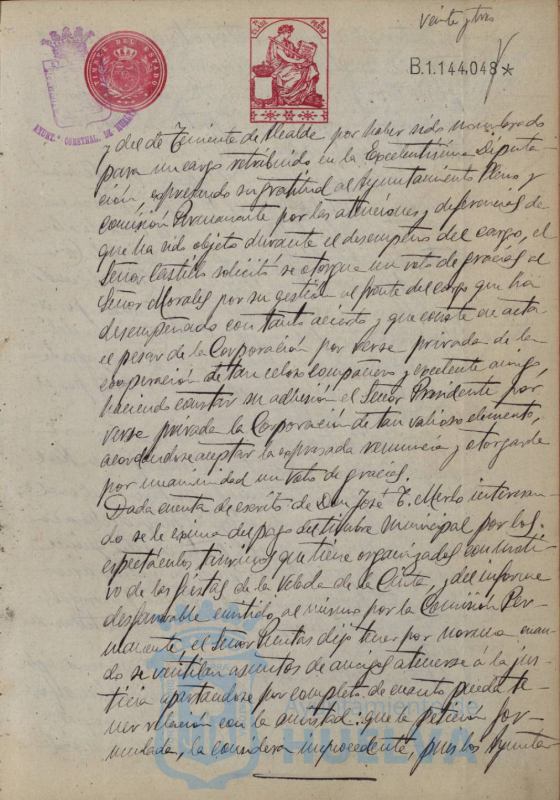 veinte y tres
TIMBRE DEL ESTADO
8ª CLASE
B.1.144.048*
AYUNTº CONSTNAL. DE HUELVA
y del de Teniente de Alcalde por haber sido nombrado
para un cargo retribuido en la Excelentísima Diputa-
ción, expresando su gratitud al Ayuntamiento Pleno y
Comisión Permanente por las atenciones y deferencias de
que ha sido objeto durante el desempeño del cargo, el
Señor Castilla solicitó se otorgue un voto de gracias al
Señor Morales por su gestión al frente del cargo que ha
desempeñado con tanto acierto y que conste en acta
el pesar de la Corporación por verse privada de la
cooperación de tan celoso compañero y excelente amigo,
haciendo constar su adhesión el Señor Presidente por
verse privada la Corporación de tan valioso elemento,
acordándose aceptar la expresada renuncia y otorgarle
por unanimidad un voto de gracias.
Dada cuenta de escrito de Don José T. Merlo interesan
do se le exima del pago del timbre municipal por los
espectáculos taurinos que tiene organizados con moti
vo de las fiestas de la Velada de la Cinta, y del informe
desfavorable emitido al mismo por la Comisión Per-
manente, el Señor dijo tener por norma cuan
do se ventilan asuntos de amigos atenerse á la jus
ticia apartándose por completo de cuanto pueda te-
ner relación con la amistad: que la petición for-
mulada, la considera improcedente, pues los Ayunta-
Ayuntamiento de
HUELVA